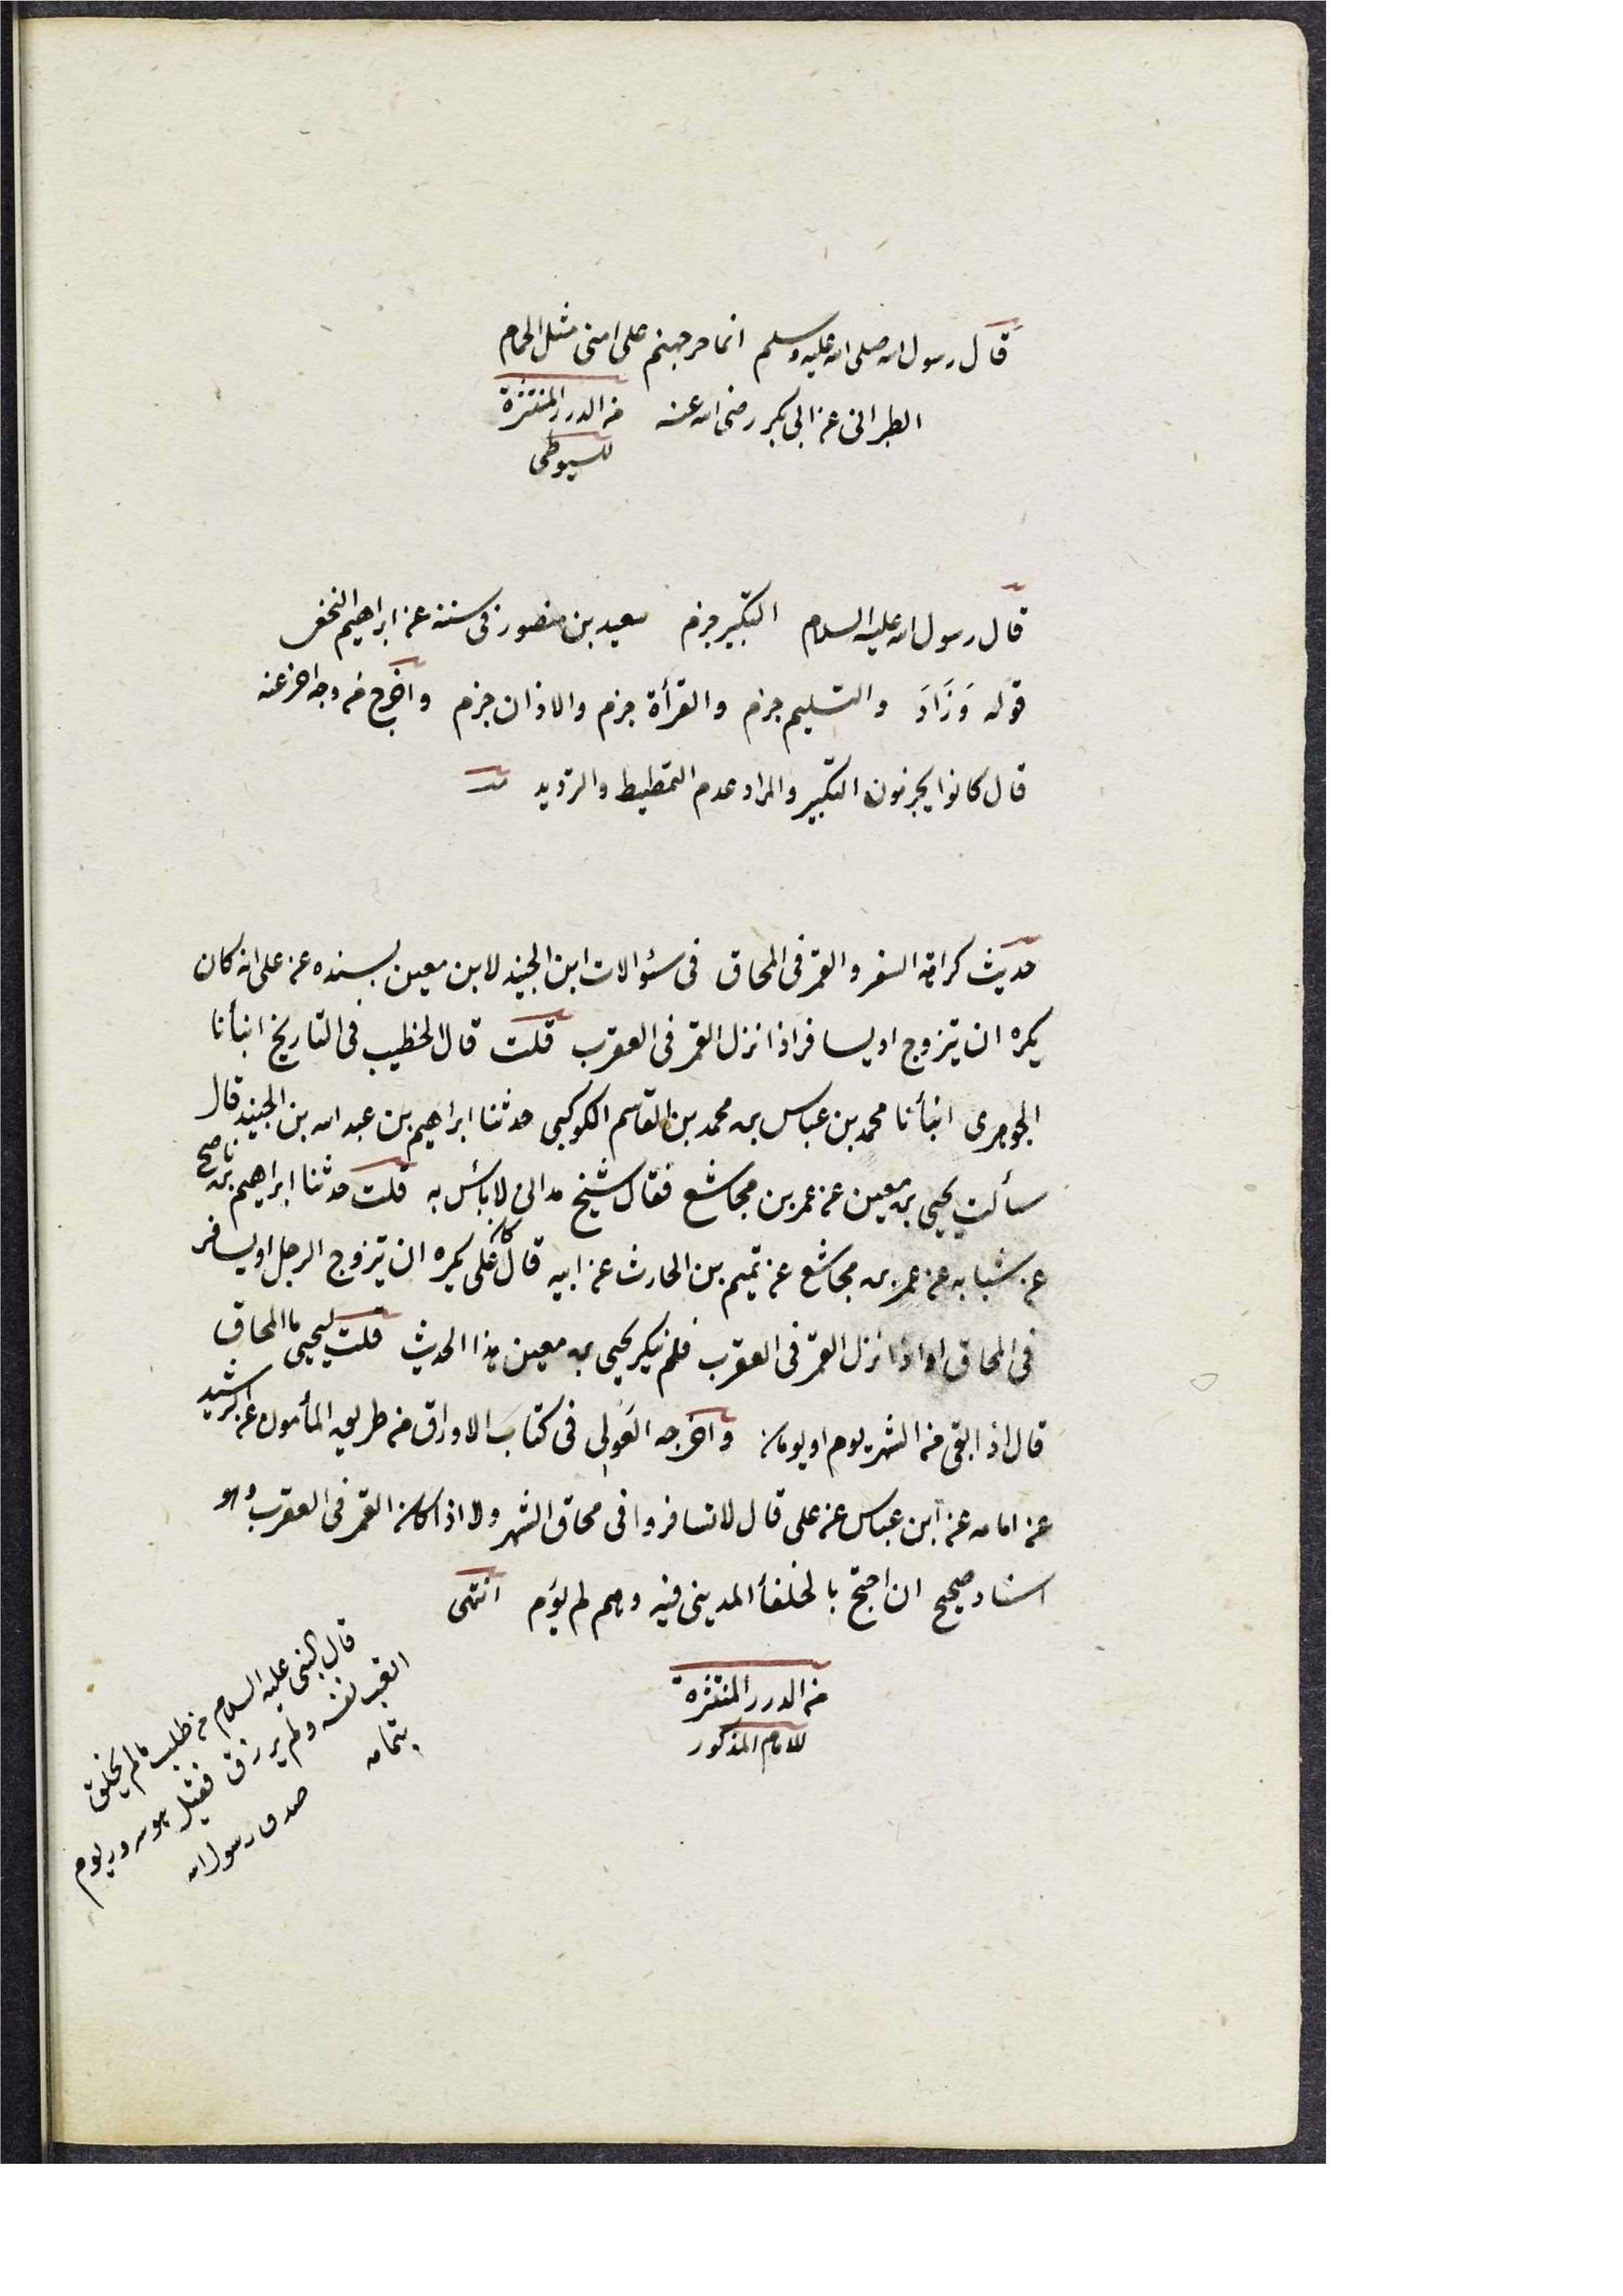 قال رسول الله صلى الله عليه وسلم انما حر جهنم على امتى مثل الحمام
الطبرانى عن ابى بكر رضى الله عنه من الدرر المنتثرة
للسيوطى
قال رسول الله عليه السلام التكبير جزم سعيد بن منصور فى سننه عن ابراهيم النخعى
قوله وَزَادَ والتسليم جزم والقرأة جزم والاذان جزم واخرج من وجه اخر عنه
قال كانوا يجزمون التكبير والمراد عدم التمطيط والترديد منه
حديث كراهة السفر والقمر فى المحاق فى سئوالات ابن الجنيد لابن معين بسنده عن على انه كان
يكره ان يتزوج او يسافر اذا نزل القمر فى العقرب قلت قال الخطيب فى التاريخ انبأنا
الجوهرى انبأنا محمد بن عباس بن محمد بن القاسم الكوكبى حدثنا ابراهيم بن عبد الله بن الجنيد قال
سألت يحيى بن معين عن عمر بن مجاشع فقال شيخ مداينى لا بأس به قلت حدثنا ابراهيم بن ناصح
عن شبابه عن عمر بن مجاشع عن تميم بن الحارث عن ابيه قال كان على يكره ان يتزوج الرجل او يسافر
فى المحاق او اذا نزل القمر فى العقرب فلم ينكر يحيى بن معين هذا الحديث قلت ليحيى ما المحاق
قال اذا بقى من الشهر يوم او يومان واخرجه الصولى فى كتاب الاوراق من طريق المأمون عن الرشيد
عن امامه عن ابن عباس عن على قال لا تسافروا فى محاق الشهر ولا اذا كان القمر فى العقرب وهو
اسناد صحيح ان احتج بالخلفأ المدينى فيه وهم لم يؤم انتهى
من الدرر المنتثرة
للامام المذكور
قال النبى عليه السلام من طلب ما لم يخلق
اتعب نفسه ولم يرزق فقيل ما هو سرور يوم
بتمامه
صدق رسول الله